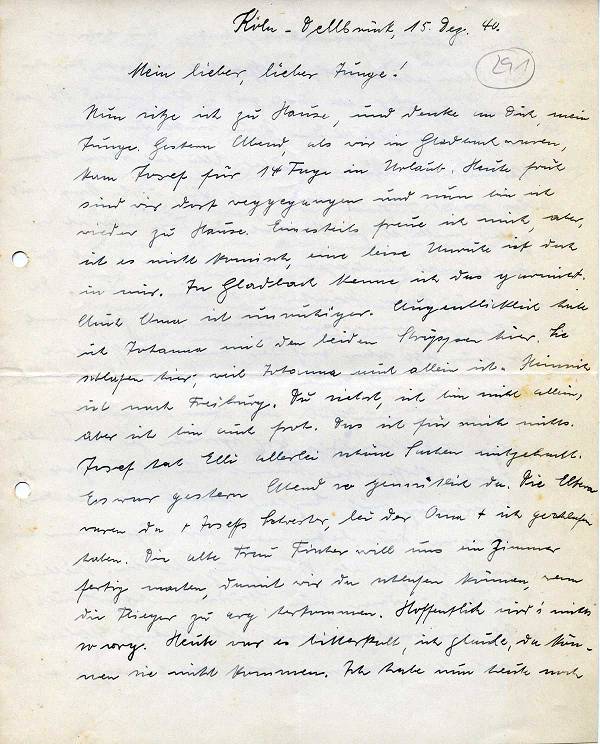 Köln-Dellbrück, 15. Dez. 40.
291
Mein lieber, lieber Junge!
Nun sitze ich zu Hause, und denke an Dich, mein
Junge. Gestern Abend, als wir in Gladbach waren,
kam Josef für 14 Tage in Urlaub. Heute früh
sind wir dort weggegangen und nun bin ich
wieder zu Hause. Einesteils freue ich mich, aber,
ist es nicht komisch, eine leise Unruhe ist doch
in mir. In Gladbach kenne ich das garnicht.
Auch Oma ist unruhiger. Augenblicklich habe
ich Johanna mit den beiden Strippen hier. Sie
schlafen hier, weil Johanna auch allein ist. Heinrich
ist nach Freiburg. Du siehst, ich bin nicht allein,
aber ich bin auch froh. Das ist für mich nichts.
Josef hat Elli allerlei schöne Sachen mitgebracht.
Es war gestern Abend so gemütlich da. Die Eltern
waren da + Josefs Schwester, bei der Oma + ich geschlafen
haben. Die alte Frau will uns ein Zimmer
fertig machen, damit wir da schlafen können, wenn
die Flieger zu arg herkommen. Hoffentlich wird's nicht
so arg. Heute war es bitterkalt, ich glaube, da kön-
nen sie nicht kommen. Ich habe nun heute noch